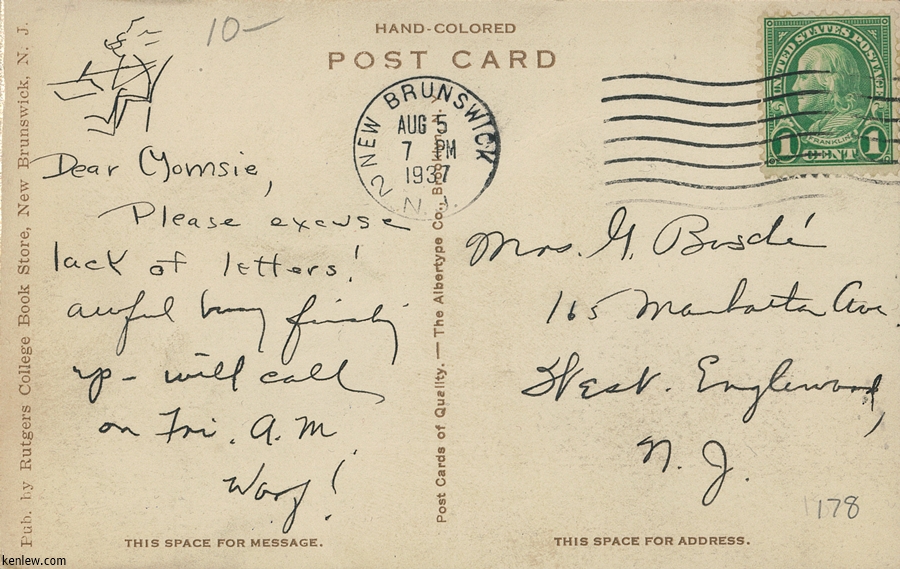 10-
HAND-COLORED
POST CARD
Pub. by Rutgers College Book Store, New Brunswick, N. J.
Dear Momsie,
Please excuse
lack of letters!
awful busy finishing
up - will call
on Fri. A.M
THIS SPACE FOR MESSAGE.
Post Cards of Quality. — The Albertype Co., Brooklyn, N.
NEW BRUNSWICK
AUG 5
7 PM
1937
N. J.
2
UNITED STATES POSTAGE
FRANKLIN
1 CENT 1
Mrs. G. Busché
165 Manhattan Ave.
West. Englewood,
N. J.
178
THIS SPACE FOR ADDRESS.
kenlew.com